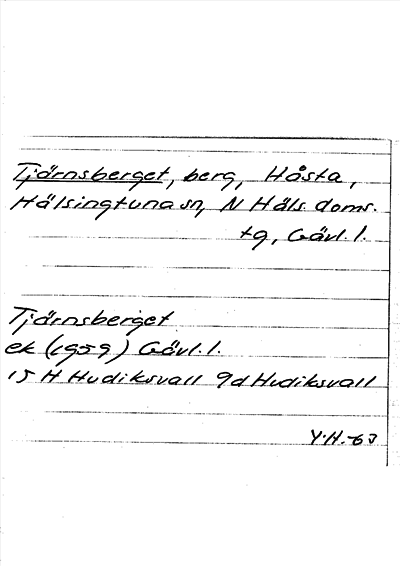 Tjärnsberget, berg, Håsta,
Hälsingtuna sn, N Häls. doms.
tg, Gävl. l.
Tjärnsberget
ek (1959) Gävl. l.
15 H Hudiksvall 9d Hudiksvall
Y.H.-63